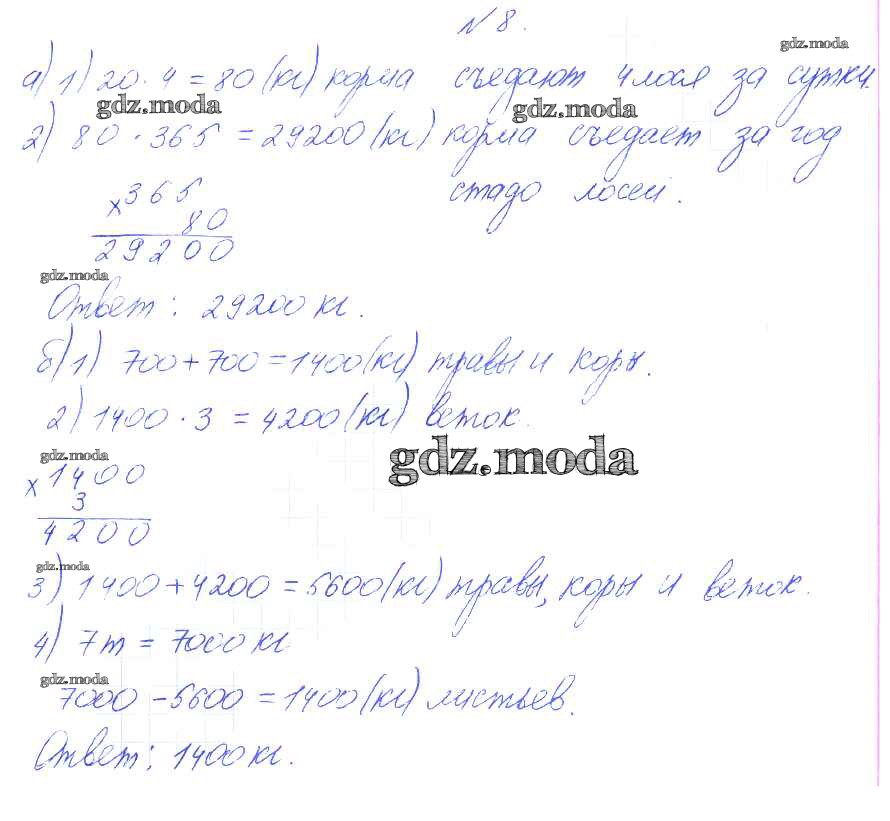 N 8.
gdz.moda
а) 1) 20 · 4 = 80 (кг) корма съедают 4 лося за сутки.
gdz.moda gdz.moda
2) 80 · 365 = 29200 (кг) корма съедает за год
стадо лосей.
х 365
80
29200
gdz.moda
Ответ: 29200 кг.
б) 1) 700 + 700 = 1400 (кг) травы и коры.
2) 1400 · 3 = 4200 (кг) веток.
gdz.moda gdz.moda
х 1400
3
4200
gdz.moda
3) 1400 + 4200 = 5600 (кг) травы, коры и веток.
4) 7т = 7000 кг
gdz.moda
7000 - 5600 = 1400 (кг) листьев.
Ответ: 1400 кг.